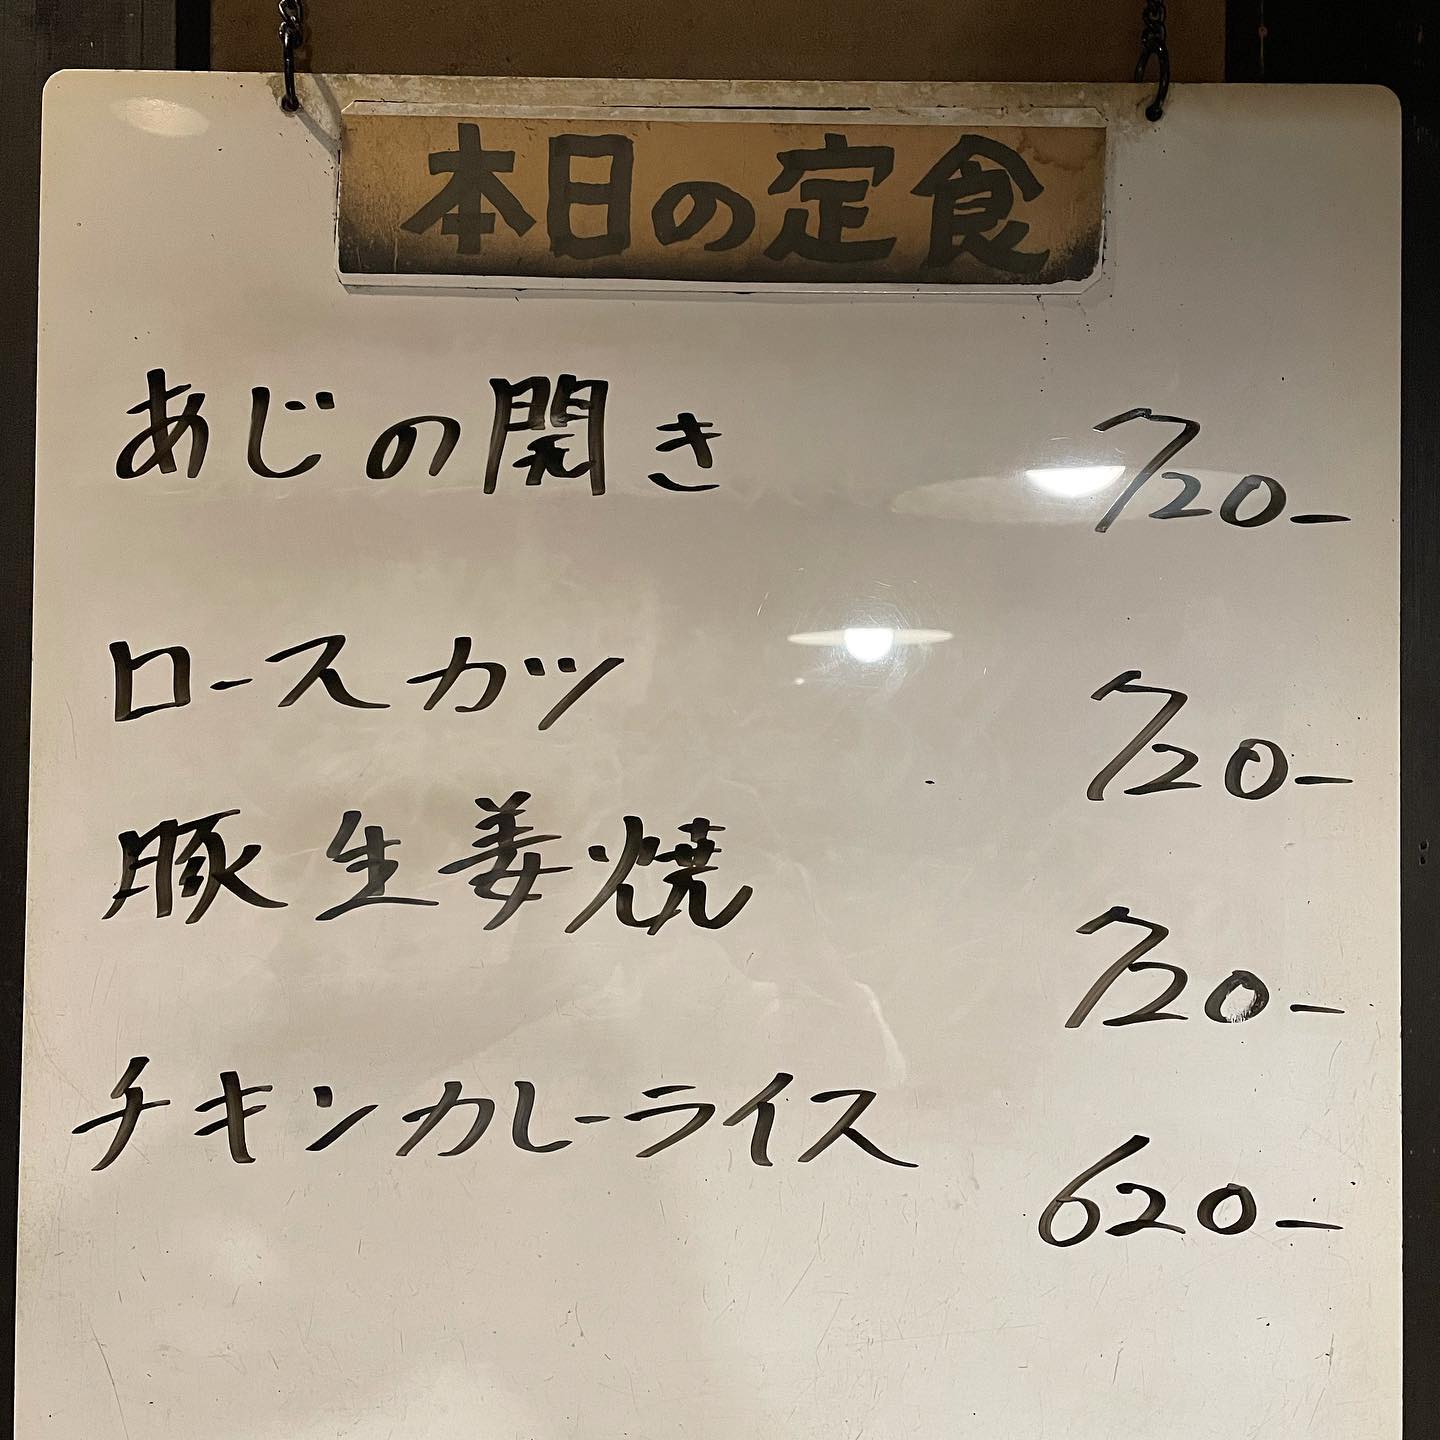 本日の定食
あじの開き 720-
ロースカツ 720-
豚生姜焼 720-
チキンカレーライス 620-